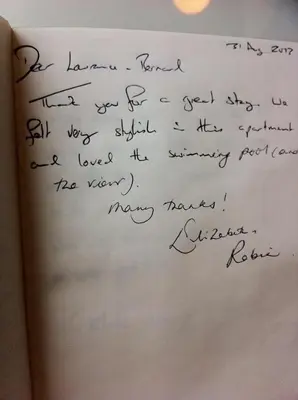 31 Aug 2012
Dear Laurence + Bernard
Thank you for a great stay. We
felt very stylish in this apartment
and loved the swimming pool (and
the view).
Many thanks!
Elizabeth +
Robin